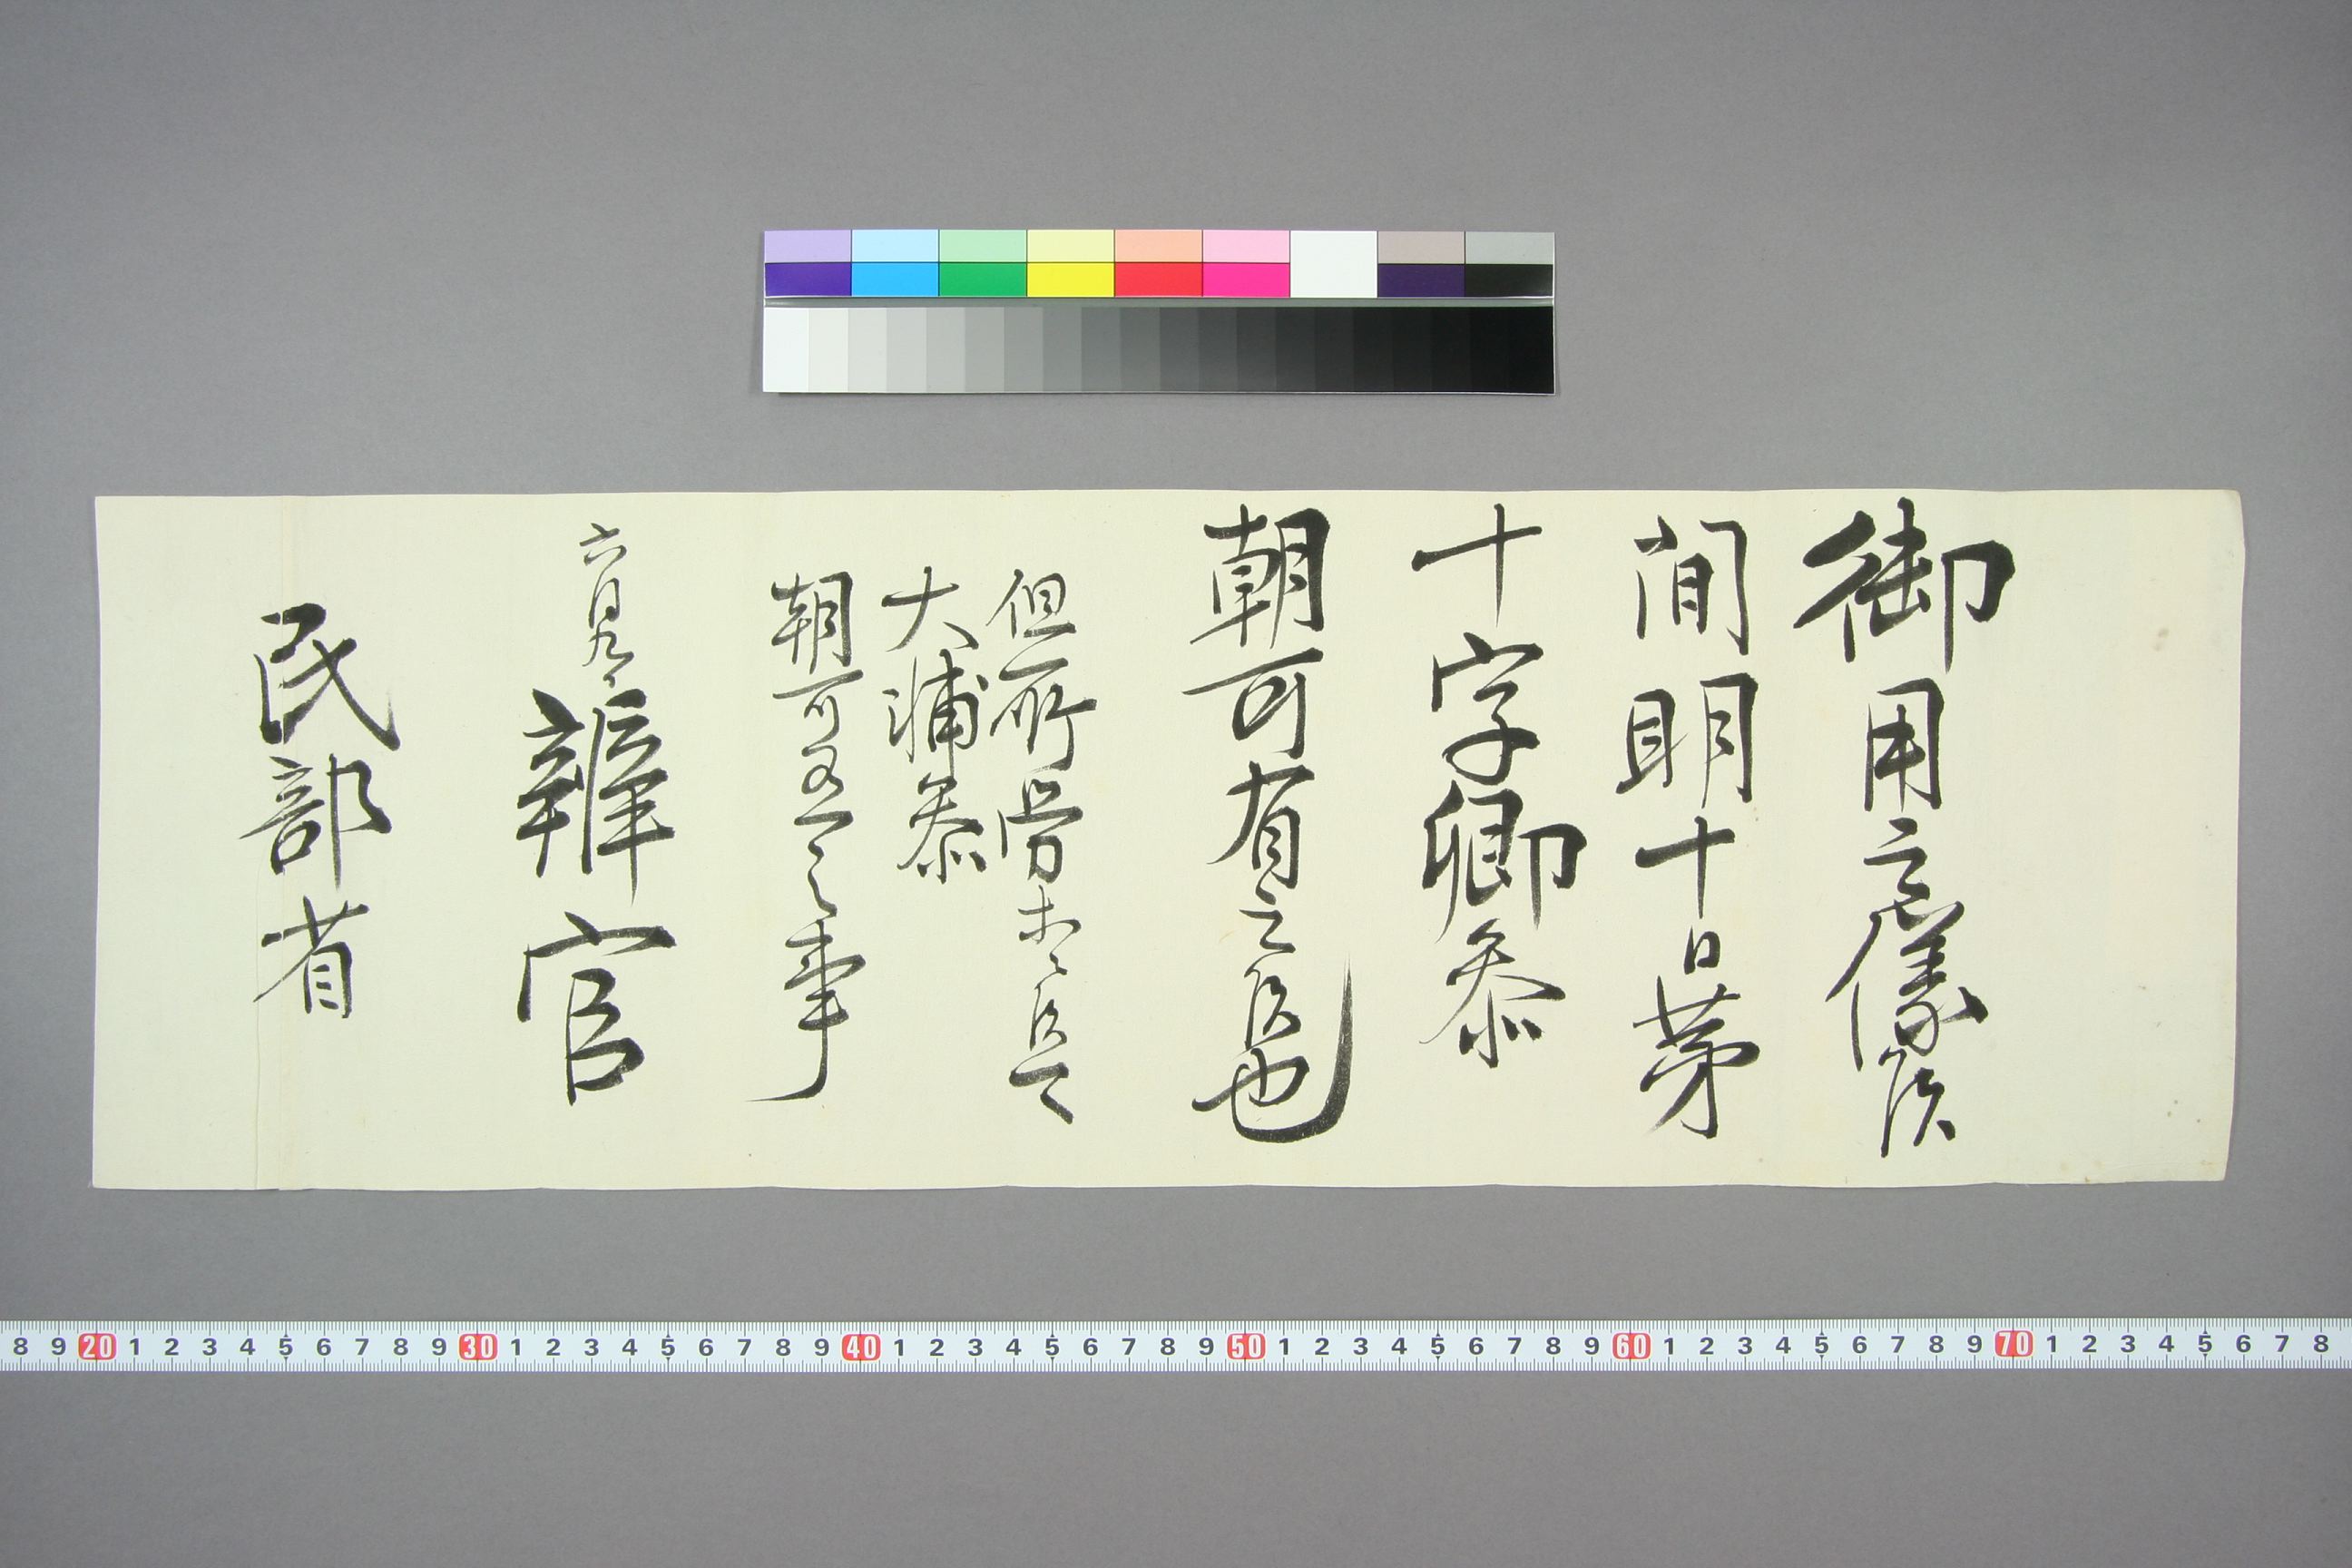 御用之儀候
間明十日第
十字卿参
朝可有之候也
但所労等ニ候ハヽ
大輔参
朝可有之事
六月九日
辨官
民部省
8 9 20 1 2 3 4 5 6 7 8 9 30 1 2 3 4 5 6 7 8 9 40 1 2 3 4 5 6 7 8 9 50 1 2 3 4 5 6 7 8 9 60 1 2 3 4 5 6 7 8 9 70 1 2 3 4 5 6 7 8